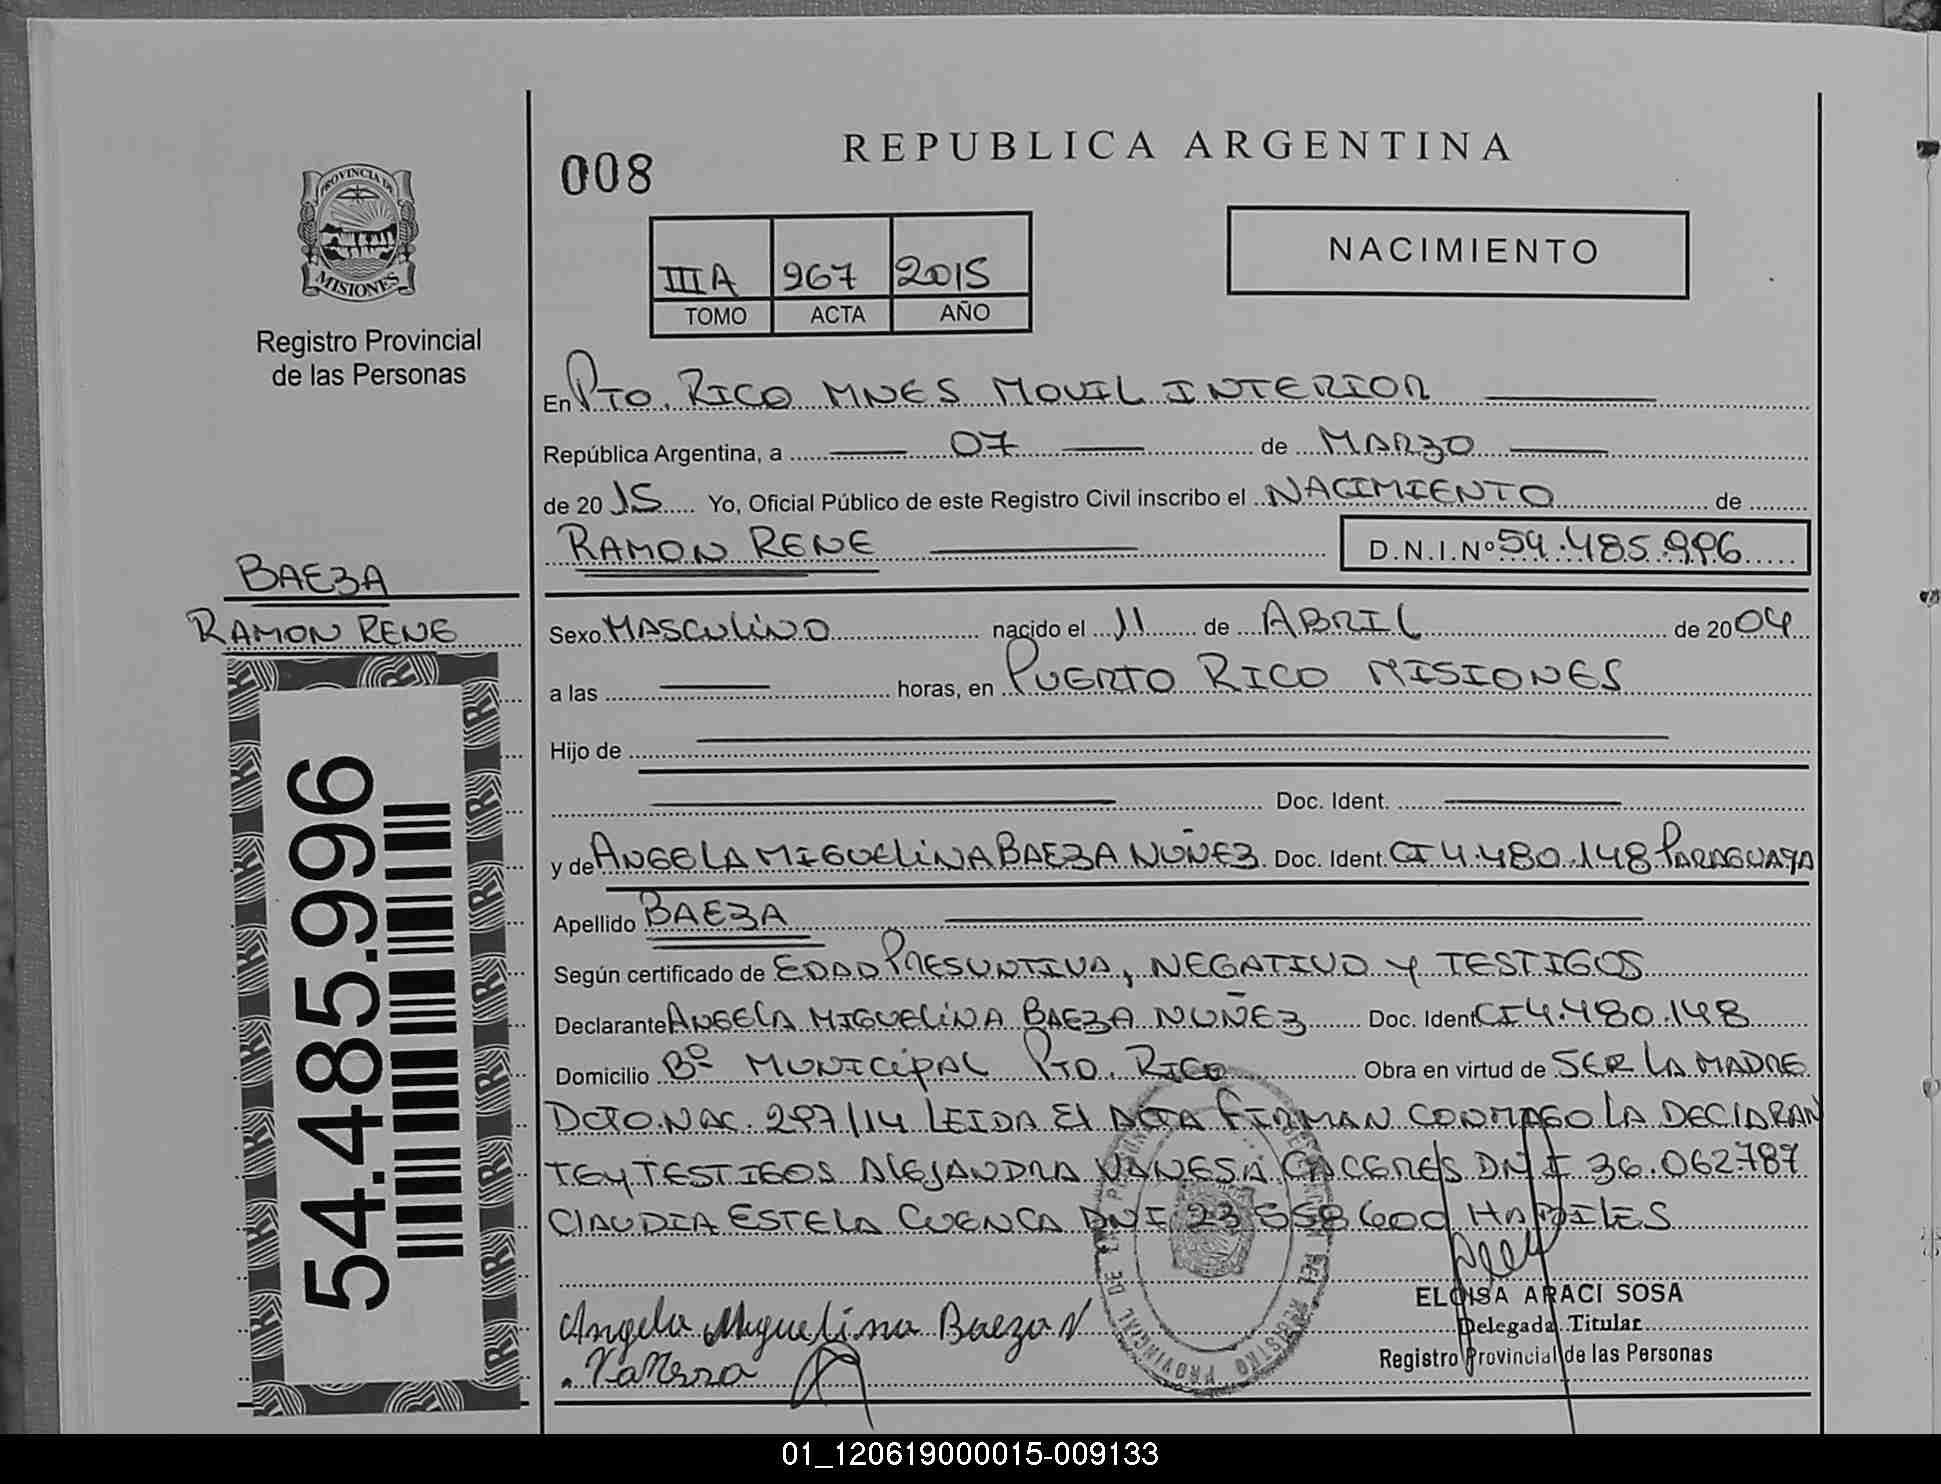 REPUBLICA ARGENTINA
008
PROVINCIA DE
MISIONES
Registro Provincial
de las Personas
IIIA 967 2015
TOMO ACTA AÑO
NACIMIENTO
En PTO. RICO MNES MOVIL INTERIOR
República Argentina, a 07 de MARZO
de 2015 Yo, Oficial Público de este Registro Civil inscribo el NACIMIENTO de
RAMON RENE D.N.I.Nº 54.485.996
BAEZA
RAMON RENE
Sexo MASCULINO nacido el 11 de ABRIL de 2004
a las horas, en PUERTO RICO MISIONES
Hijo de
Doc. Ident.
y de ANGELA MIGUELINA BAEZA NUÑEZ Doc. Ident. CI 4.480.148 PARAGUAYA
Apellido BAEZA
Según certificado de EDAD PRESUNTIVA, NEGATIVO Y TESTIGOS
Declarante ANGELA MIGUELINA BAEZA NUÑEZ Doc. Ident CI 4.480.148
Domicilio Bº MUNICIPAL PTO. RICO Obra en virtud de SER LA MADRE
DCTO. NAC. 297/14 LEIDA El ACTA FIRMAN CONMIGO LA DECLARAN
TE Y TESTIGOS ALEJANDRA VANESA CACERES DNI 36.062.787
CLAUDIA ESTELA CUENCA DNI 23.558.600 HABILES
54.485.996
ELOISA ARACI SOSA
Delegada Titular
Registro Provincial de las Personas
Angela Miguelina Baeza N
01_120619000015-009133